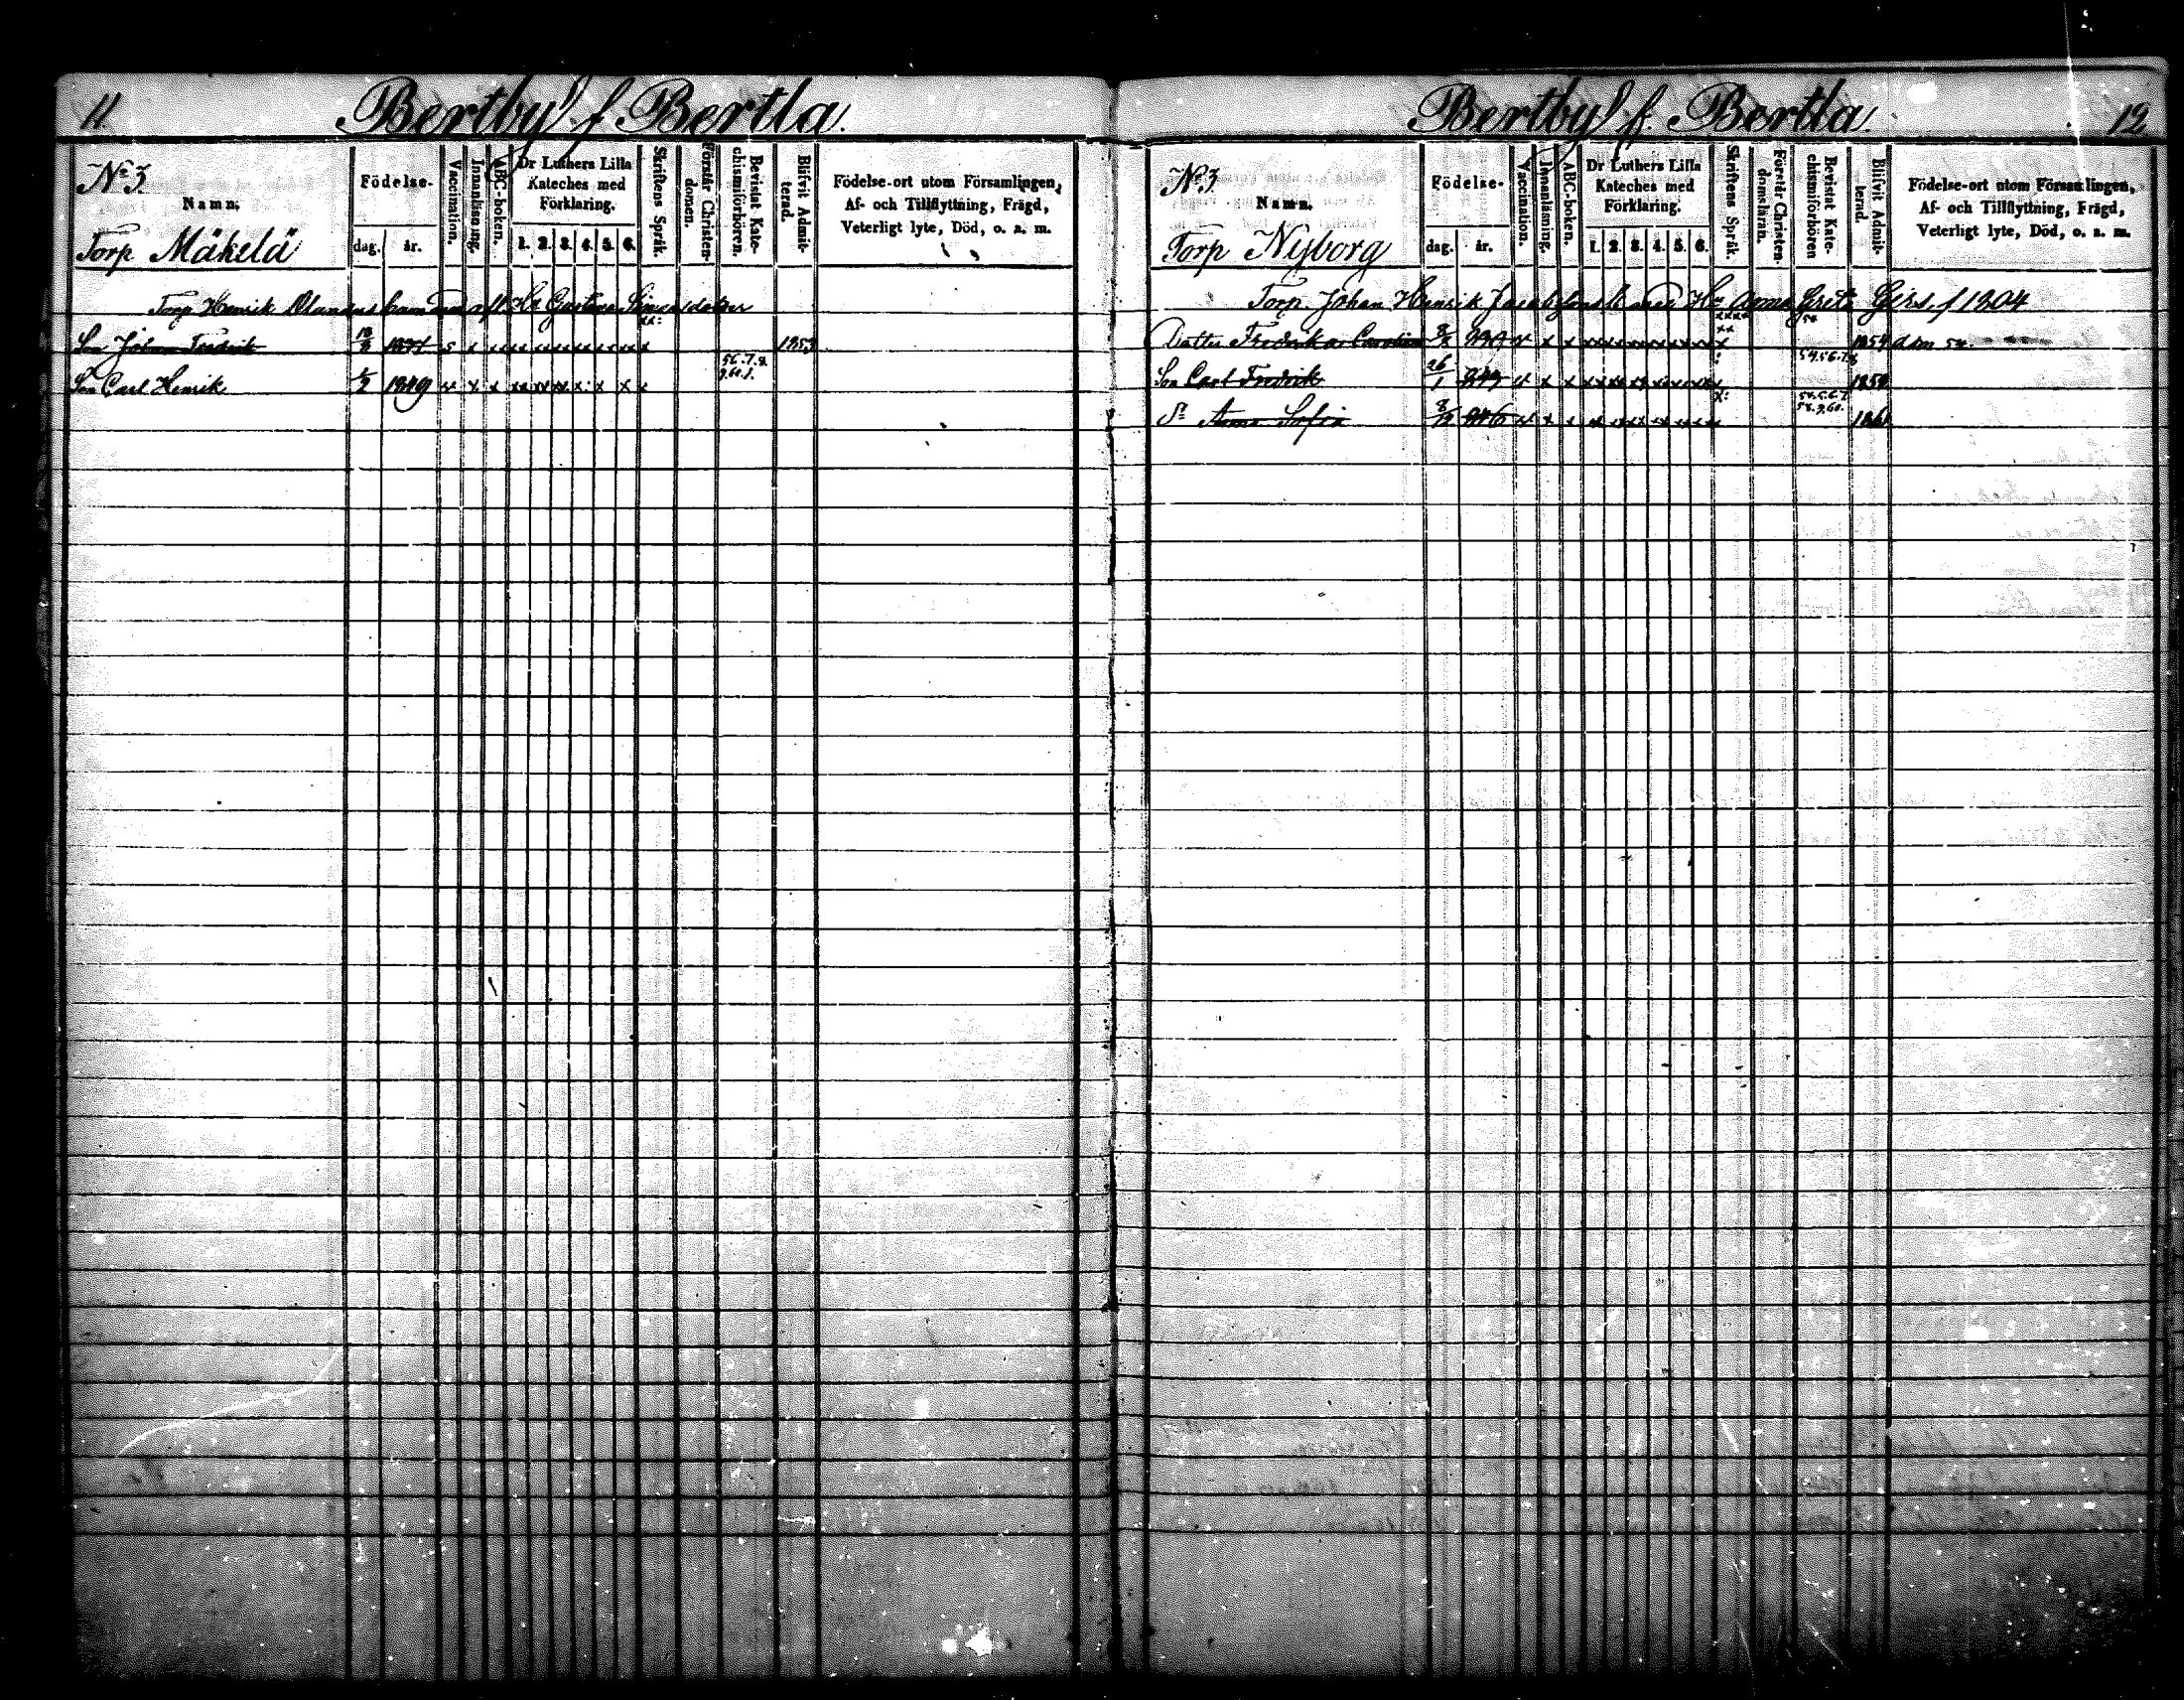 11.
Bertby f Bertla.
No 3
Namn.
Torp Mäkelä
Födelse-
dag. år.
Vaccination.
Innanläsning.
ABC-boken.
Dr Luthers Lilla
Kateches med
Förklaring.
1. 2. 3. 4. 5. 6.
Skriftens Språk.
Förstår Christen-
domen.
Bevistat Kate-
chismiförhören.
Blifvit Admit-
terad.
Födelse-ort utom Församlingen,
Af- och Tillflyttning, Frägd,
Veterligt lyte, Död, o. s. m.
Torp Henrik Gustava Simonsdotter
Son Johan Fredrik x x 1853
56.7.8.
9.60.1.
Son Carl Henrik 1849 x x x x x x x x x x
Bertby f. Bertla.
12
No 3
Namn.
Torp Nyborg
Födelse-
dag. år.
Vaccination.
Innanläsning.
ABC-boken.
Dr Luthers Lilla
Kateches med
Förklaring.
1. 2. 3. 4. 5. 6.
Skriftens Språk.
Förstår Christen-
domsläran.
Bevistat Kate-
chismiförhören
Blifvit Admit-
terad.
Födelse-ort utom Församlingen,
Af- och Tillflyttning, Frägd,
Veterligt lyte, Död, o. s. m.
Torp Johan Henrik Jacobsons Hu Anna Greta Gers. f 1804
Dotter Fredrika Carolina x x x 1854 adm 54.
54.56.7.8
Son Carl Fredrik 26/1 x x x
54.5.6.7.
58.9.60.
Dr Anna Sofia 8/12 846 x x x 1861